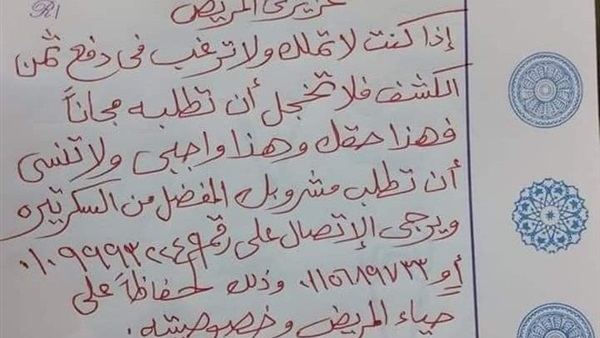 R/
عزيزى المريض
إذا كنت لا تملك ولا ترغب فى دفع ثمن
الكشف فلا تخجل أن تطلبه مجاناً
فهذا حقك وهذا واجبى ولا تنسى
أن تطلب مشروبك المفضل من السكرتيره
ويرجى الإتصال على رقم ٠١٠٩٩٩٣٢٢٤٩
أو ٠١١٥٦٨٩٧٣٣ وذلك لحفاظاً على
حياء المريض وخصوصيته.